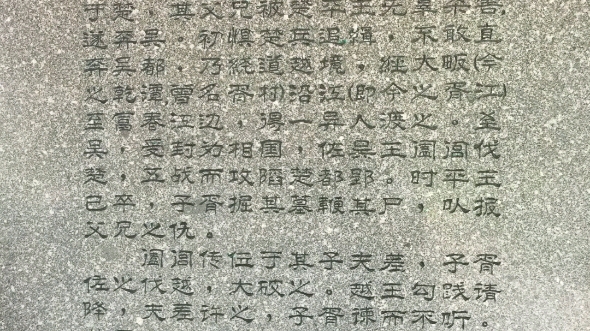 于楚，其父兄被楚平王无辜杀害，
遂奔吴。初惧楚兵追缉，不敢直
奔吴都，乃绕道越境。经大畈(今
之乾潭，曾名胥村)沿江(即今之胥江)
至富春江边，得一异人渡之。至
吴，受封为相国，佐吴王阖闾伐
楚，五战而攻陷楚都郢。时平王
已卒，子胥掘其墓鞭其尸，以报
父兄之仇。
阖闾传位于其子夫差，子胥
佐之伐越，大破之。越王勾践请
降，夫差许之，子胥谏而不听。